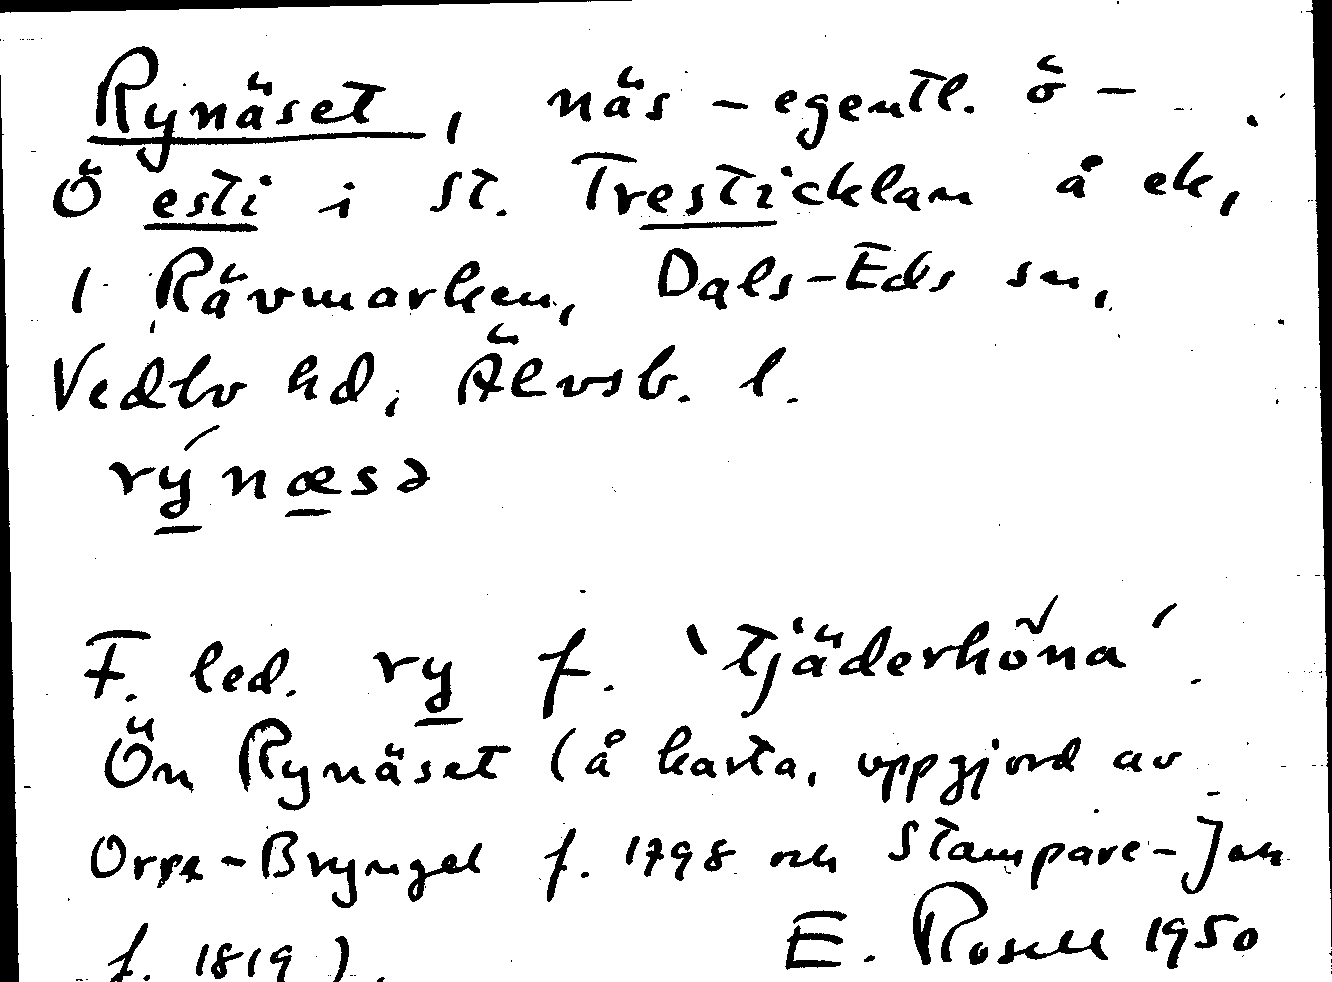 Rynäset, näs – egentl. ö –
Ö esti i St. Tresticklan å ek,
i Rävmarken, Dals-Eds sn,
Vedbo hd, Älvsb. l.
rýnæsə
F. led. ry f. 'tjäderhöna'.
Ön Rynäset (å karta, uppgjord av
Bryngel f. 1798 och Stampare-Jan
f. 1819).
E. Rosell 1950